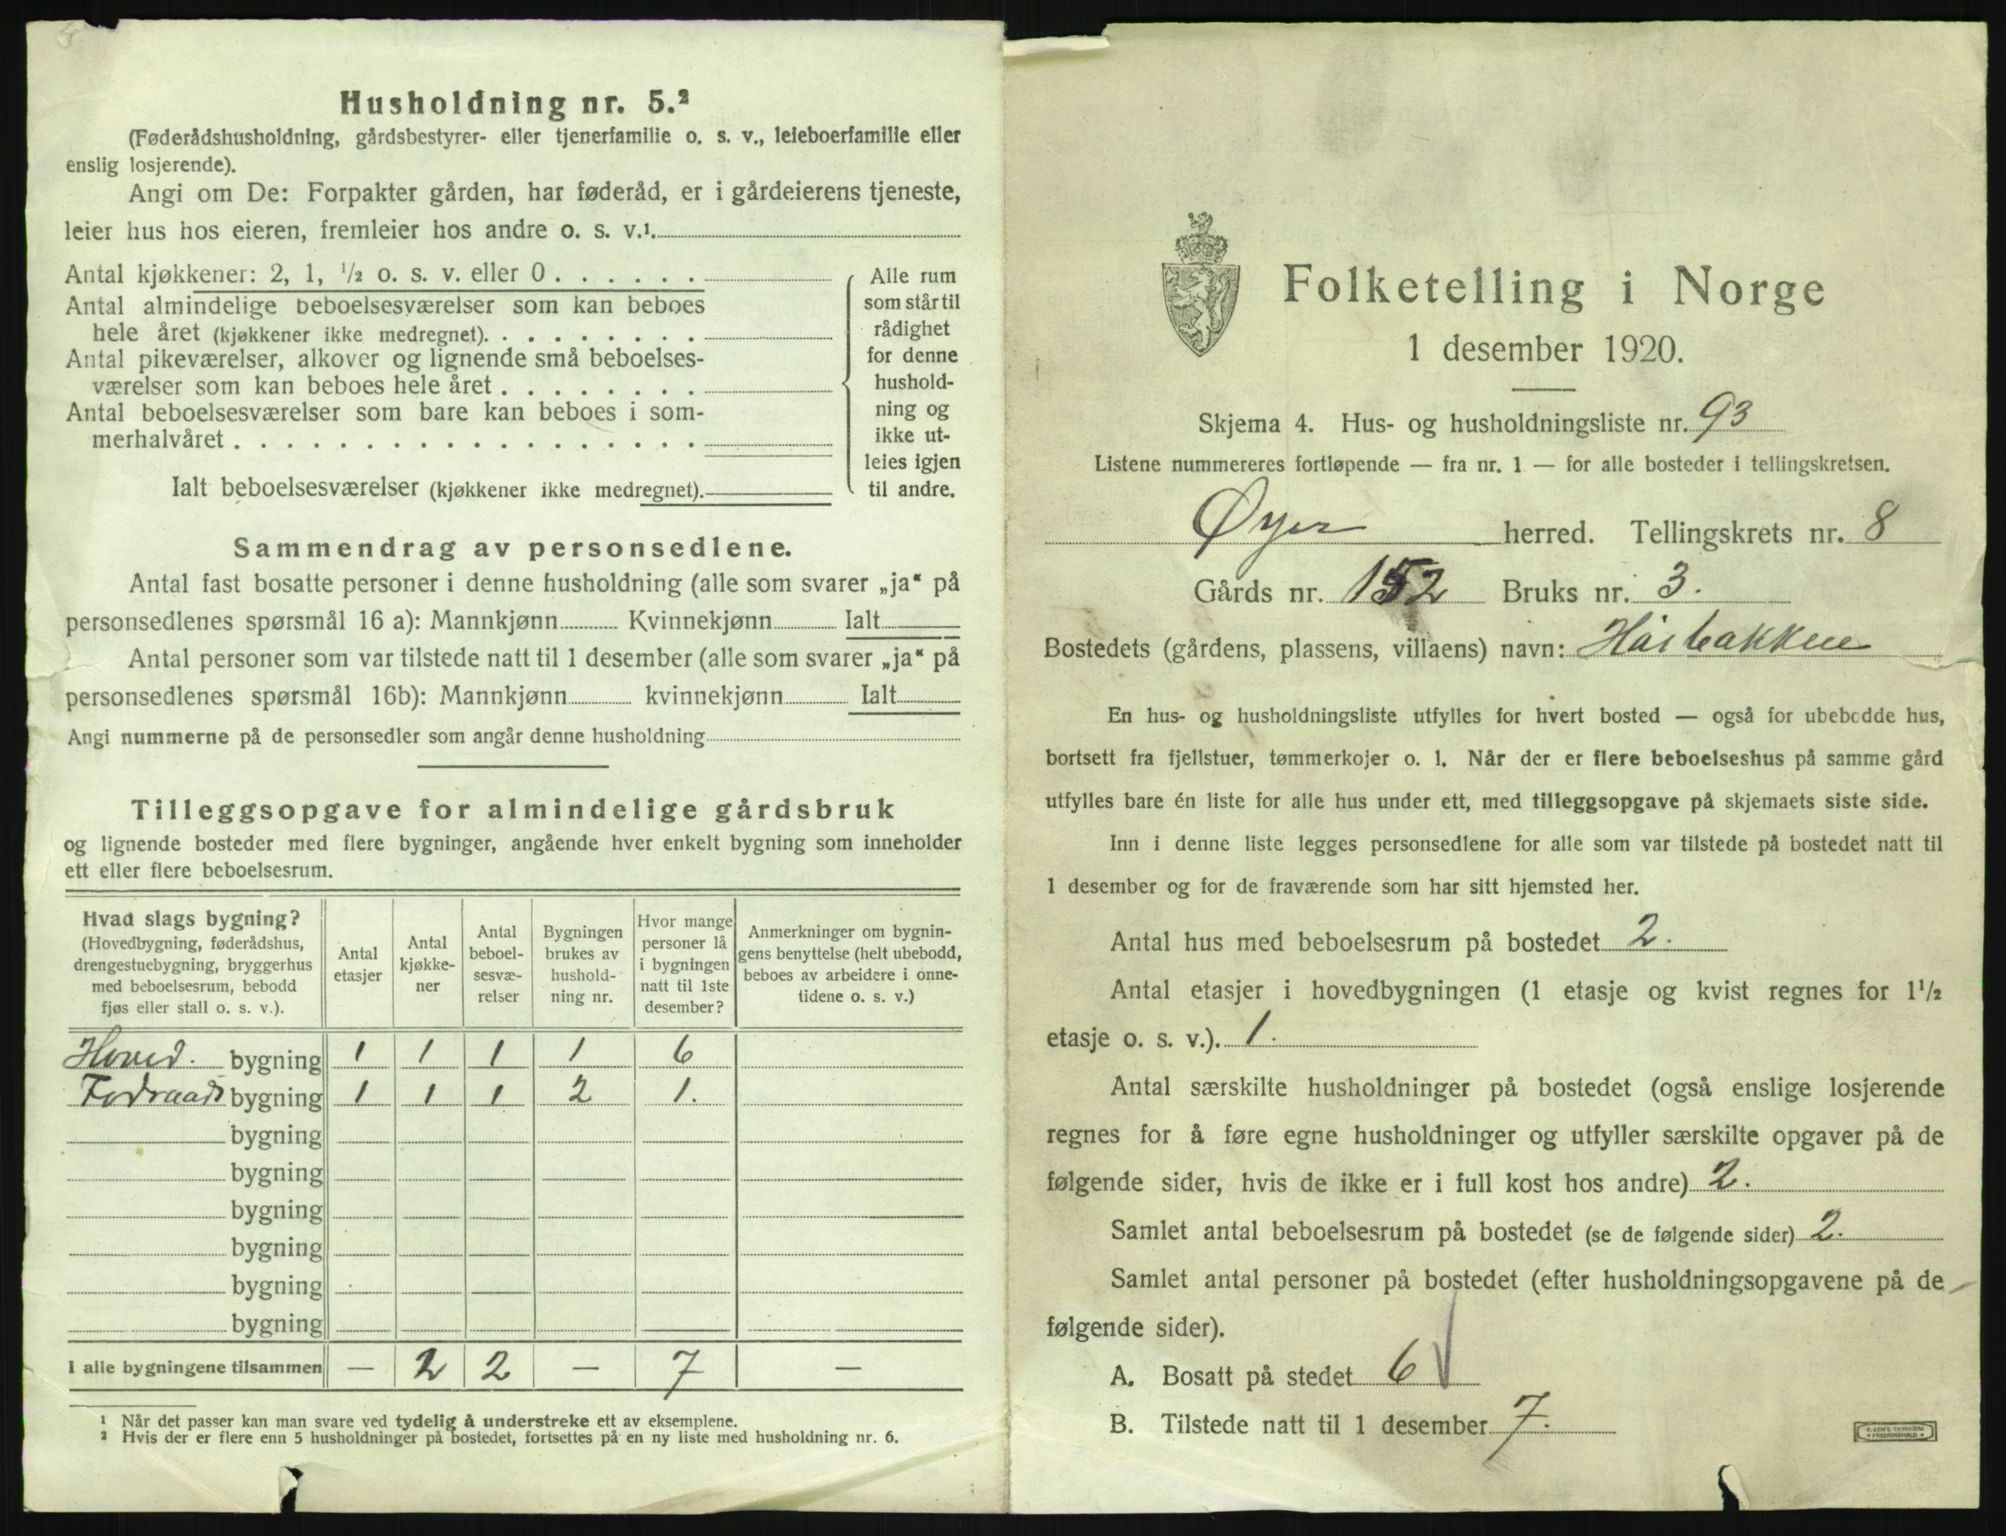 Husholdning nr. 5.²
(Føderådshusholdning, gårdsbestyrer- eller tjenerfamilie o. s. v., leieboerfamilie eller
enslig losjerende).
Angi om De: Forpakter gården, har føderåd, er i gårdeierens tjeneste,
leier hus hos eieren, fremleier hos andre o. s. v.¹.
Antal kjøkkener: 2, 1, ½ o. s. v. eller 0 . . . . . .
Antal almindelige beboelsesværelser som kan beboes
hele året (kjøkkener ikke medregnet). . . . . . . . .
Antal pikeværelser, alkover og lignende små beboelses-
værelser som kan beboes hele året . . . . . . . .
Antal beboelsesværelser som bare kan beboes i som-
merhalvåret . . . . . . . . . . . . . . . . . .
Ialt beboelsesværelser (kjøkkener ikke medregnet).
Alle rum
som står til
rådighet
for denne
hushold-
ning og
ikke ut-
leies igjen
til andre.
Sammendrag av personsedlene.
Antal fast bosatte personer i denne husholdning (alle som svarer „ja“ på
personsedlenes spørsmål 16 a): Mannkjønn Kvinnekjønn Ialt
Antal personer som var tilstede natt til 1 desember (alle som svarer „ja“ på
personsedlenes spørsmål 16b): Mannkjønn kvinnekjønn Ialt
Angi nummerne på de personsedler som angår denne husholdning
Tilleggsopgave for almindelige gårdsbruk
og lignende bosteder med flere bygninger, angående hver enkelt bygning som inneholder
ett eller flere beboelsesrum.
Hvad slags bygning?
(Hovedbygning, føderådshus,
drengestuebygning, bryggerhus
med beboelsesrum, bebodd
fjøs eller stall o. s. v.).
Antal
etasjer
Antal
kjøkke-
ner
Antal
beboel-
sesvæ-
relser
Bygningen
brukes av
hushold-
ning nr.
Hvor mange
personer lå
i bygningen
natt til 1ste
desember?
Anmerkninger om bygnin-
gens benyttelse (helt ubebodd,
beboes av arbeidere i onne-
tidene o. s. v.)
Hoved. bygning 1 1 1 1 6
Fodraads bygning 1 1 1 2 1.
bygning
bygning
bygning
bygning
bygning
bygning
I alle bygningene tilsammen — 2 2 — 7 —
¹ Når det passer kan man svare ved tydelig å understreke ett av eksemplene.
² Hvis der er flere enn 5 husholdninger på bostedet, fortsettes på en ny liste med husholdning nr. 6.
Folketelling i Norge
1 desember 1920.
Skjema 4. Hus- og husholdningsliste nr. 93
Listene nummereres fortløpende — fra nr. 1 — for alle bosteder i tellingskretsen.
Øyer herred. Tellingskrets nr. 8
Gårds nr. 152 Bruks nr. 3.
Bostedets (gårdens, plassens, villaens) navn: Håsbakken
En hus- og husholdningsliste utfylles for hvert bosted — også for ubebodde hus,
bortsett fra fjellstuer, tømmerkojer o. l. Når der er flere beboelseshus på samme gård
utfylles bare én liste for alle hus under ett, med tilleggsopgave på skjemaets siste side.
Inn i denne liste legges personsedlene for alle som var tilstede på bostedet natt til
1 desember og for de fraværende som har sitt hjemsted her.
Antal hus med beboelsesrum på bostedet 2.
Antal etasjer i hovedbygningen (1 etasje og kvist regnes for 1½
etasje o. s. v.). 1.
Antal særskilte husholdninger på bostedet (også enslige losjerende
regnes for å føre egne husholdninger og utfyller særskilte opgaver på de
følgende sider, hvis de ikke er i full kost hos andre) 2.
Samlet antal beboelsesrum på bostedet (se de følgende sider) 2.
Samlet antal personer på bostedet (efter husholdningsopgavene på de
følgende sider).
A. Bosatt på stedet 6
B. Tilstede natt til 1 desember 7.